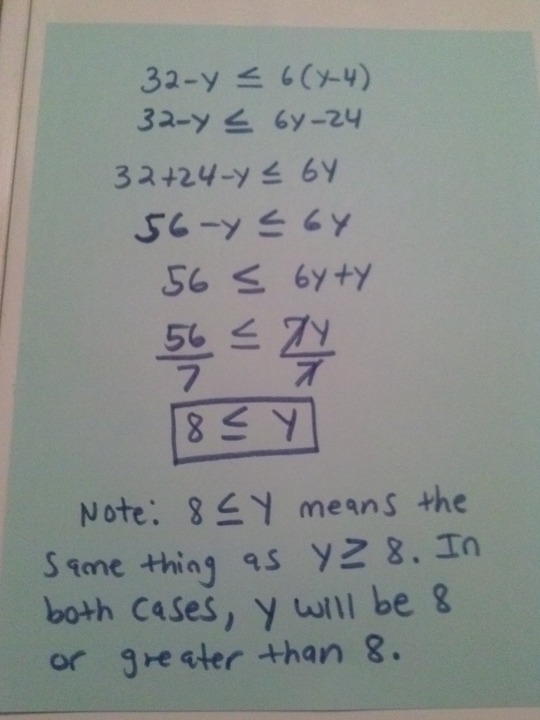 32-y ≤ 6(y-4)
32-y ≤ 6y-24
32+24-y ≤ 6y
56-y ≤ 6y
56 ≤ 6y+y
56/7 ≤ 7y/7
8 ≤ y
Note: 8 ≤ y means the
same thing as y ≥ 8. In
both cases, y will be 8
or greater than 8.